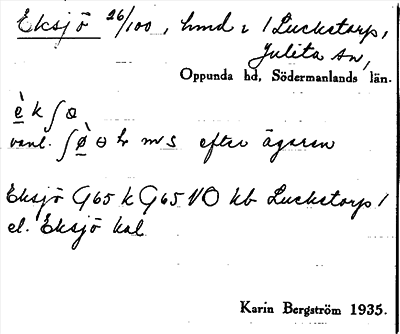 Eksjö 26/100, hmd i / Luckstorp,
Julita sn,
Oppunda hd, Södermanlands län.
è k ʃ ɵ
vanl. ʃ ø̀ ɵ
efter ägaren
Eksjö G65 k G65 VO kb Luckstorp /
el. Eksjö kal
Karin Bergström 1935.